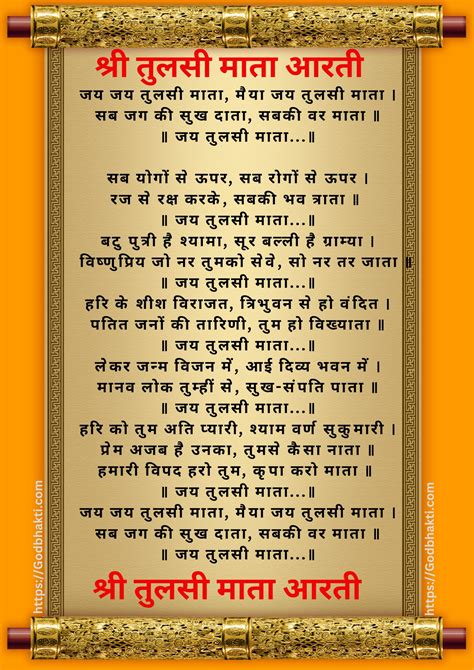 श्री तुलसी माता आरती
जय जय तुलसी माता, मैया जय तुलसी माता ।
सब जग की सुख दाता, सबकी वर माता ॥
॥ जय तुलसी माता...॥
सब योगों से ऊपर, सब रोगों से ऊपर ।
रज से रक्ष करके, सबकी भव त्राता ॥
॥ जय तुलसी माता...॥
बटु पुत्री है श्यामा, सूर बल्ली है ग्राम्या ।
विष्णुप्रिय जो नर तुमको सेवे, सो नर तर जाता ॥
॥ जय तुलसी माता...॥
हरि के शीश विराजत, त्रिभुवन से हो वंदित ।
पतित जनों की तारिणी, तुम हो विख्याता ॥
॥ जय तुलसी माता...॥
लेकर जन्म विजन में, आई दिव्य भवन में ।
मानव लोक तुम्हीं से, सुख-संपति पाता ॥
॥ जय तुलसी माता...॥
हरि को तुम अति प्यारी, श्याम वर्ण सुकुमारी ।
प्रेम अजब है उनका, तुमसे कैसा नाता ॥
हमारी विपद हरो तुम, कृपा करो माता ॥
॥ जय तुलसी माता...॥
जय जय तुलसी माता, मैया जय तुलसी माता ।
सब जग की सुख दाता, सबकी वर माता ॥
॥ जय तुलसी माता...॥
श्री तुलसी माता आरती
https://Godbhakti.com
https://Godbhakti.com